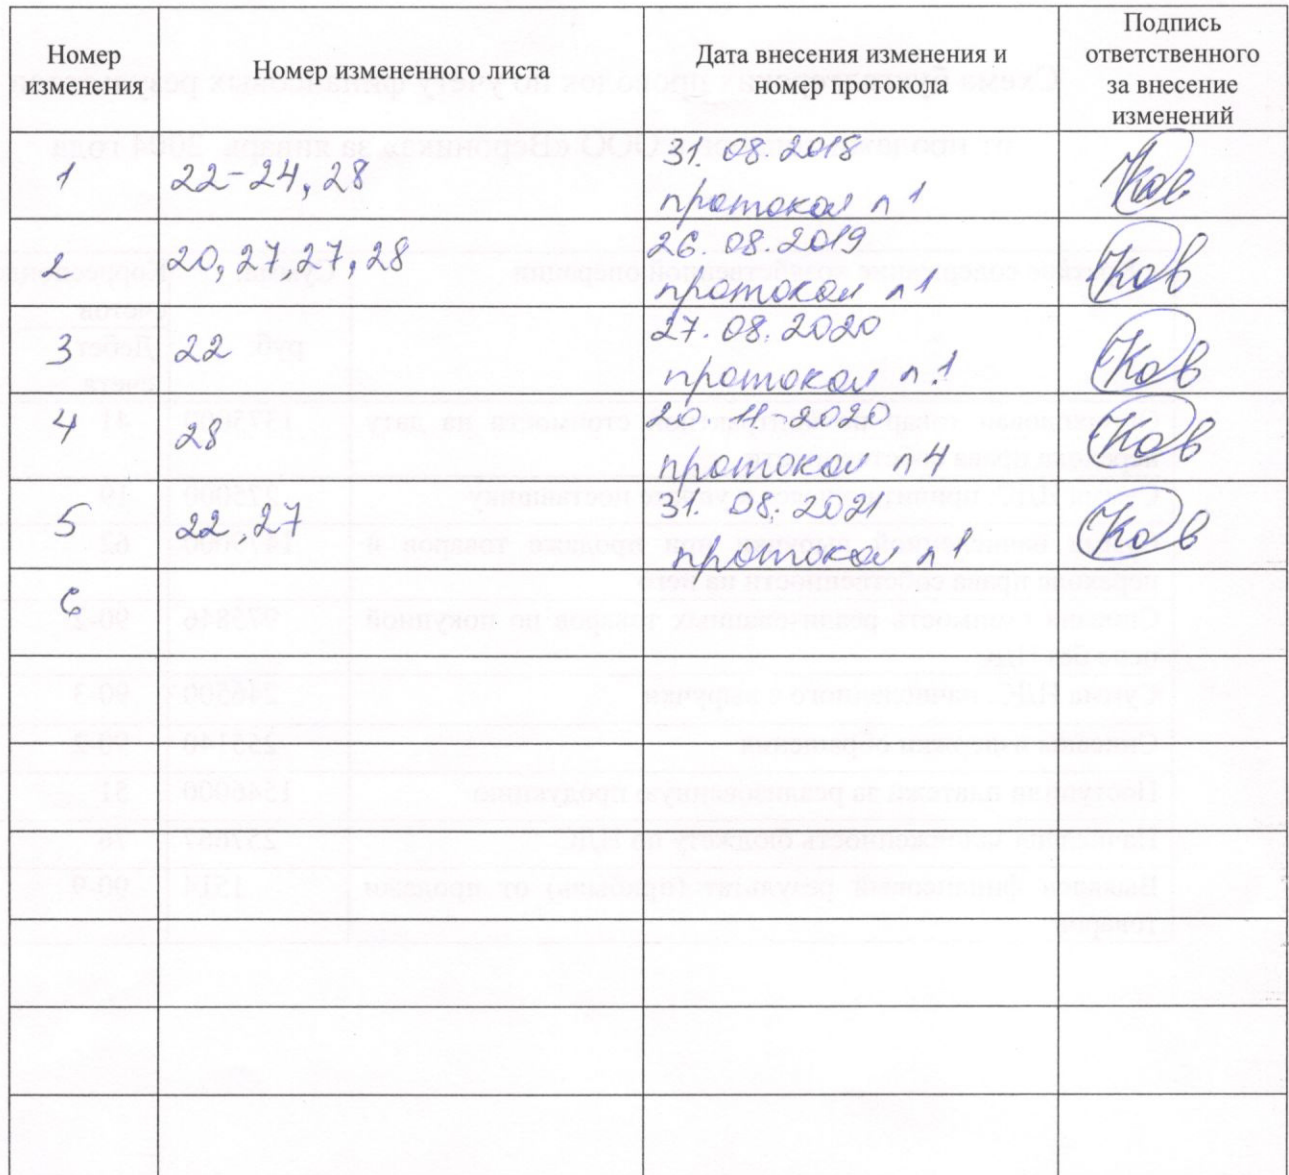 Номер
изменения
Номер измененного листа
Дата внесения изменения и
номер протокола
Подпись
ответственного
за внесение
изменений
1
22-24, 28
31. 08. 2018
протокол п 1
Ков
2
20, 27, 27, 28
26. 08. 2019
протокол п 1
Ков
3
22
27. 08. 2020
протокол п. 1
Ков
4
28
20. 11. 2020
протокол п 4
Ков
5
22, 27
31. 08. 2021
протокол п 1
Ков
6